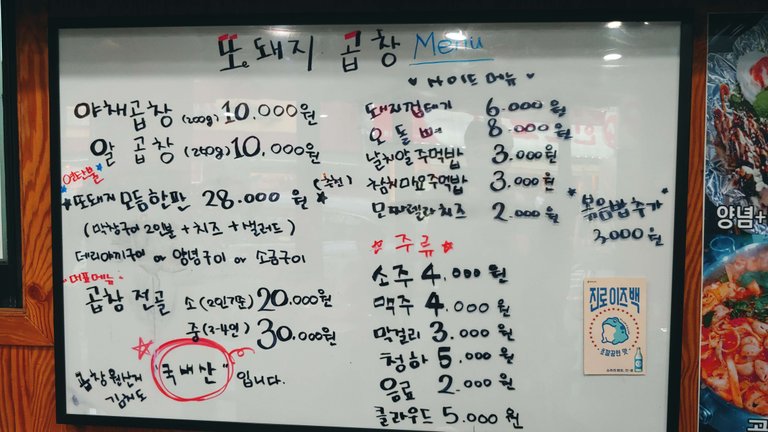 또.돼지 곱창 Menu
야채곱창 (200g) 10.000원
알 곱창 (250g) 10.000원
연탄불
또돼지 모듬한판 28.000원 (추천)
(막창구이 2인분 + 치즈 + 샐러드)
데리야끼구이 or 양념구이 or 소금구이
대표메뉴
곱창 전골 소(2인기준) 20.000원
중(3-4인) 30.000원
곱창 원산지 김치도 "국내산" 입니다.
사이드 메뉴
돼지껍데기 6.000원
오돌뼈 8.000원
날치알 주먹밥 3.000원
참치마요주먹밥 3.000원
모짜렐라치즈 2.000원
볶음밥 추가
3.000원
주류
소주 4.000원
맥주 4.000원
막걸리 3.000원
청하 5.000원
음료 2.000원
클라우드 5.000원
진로이즈백
양념+